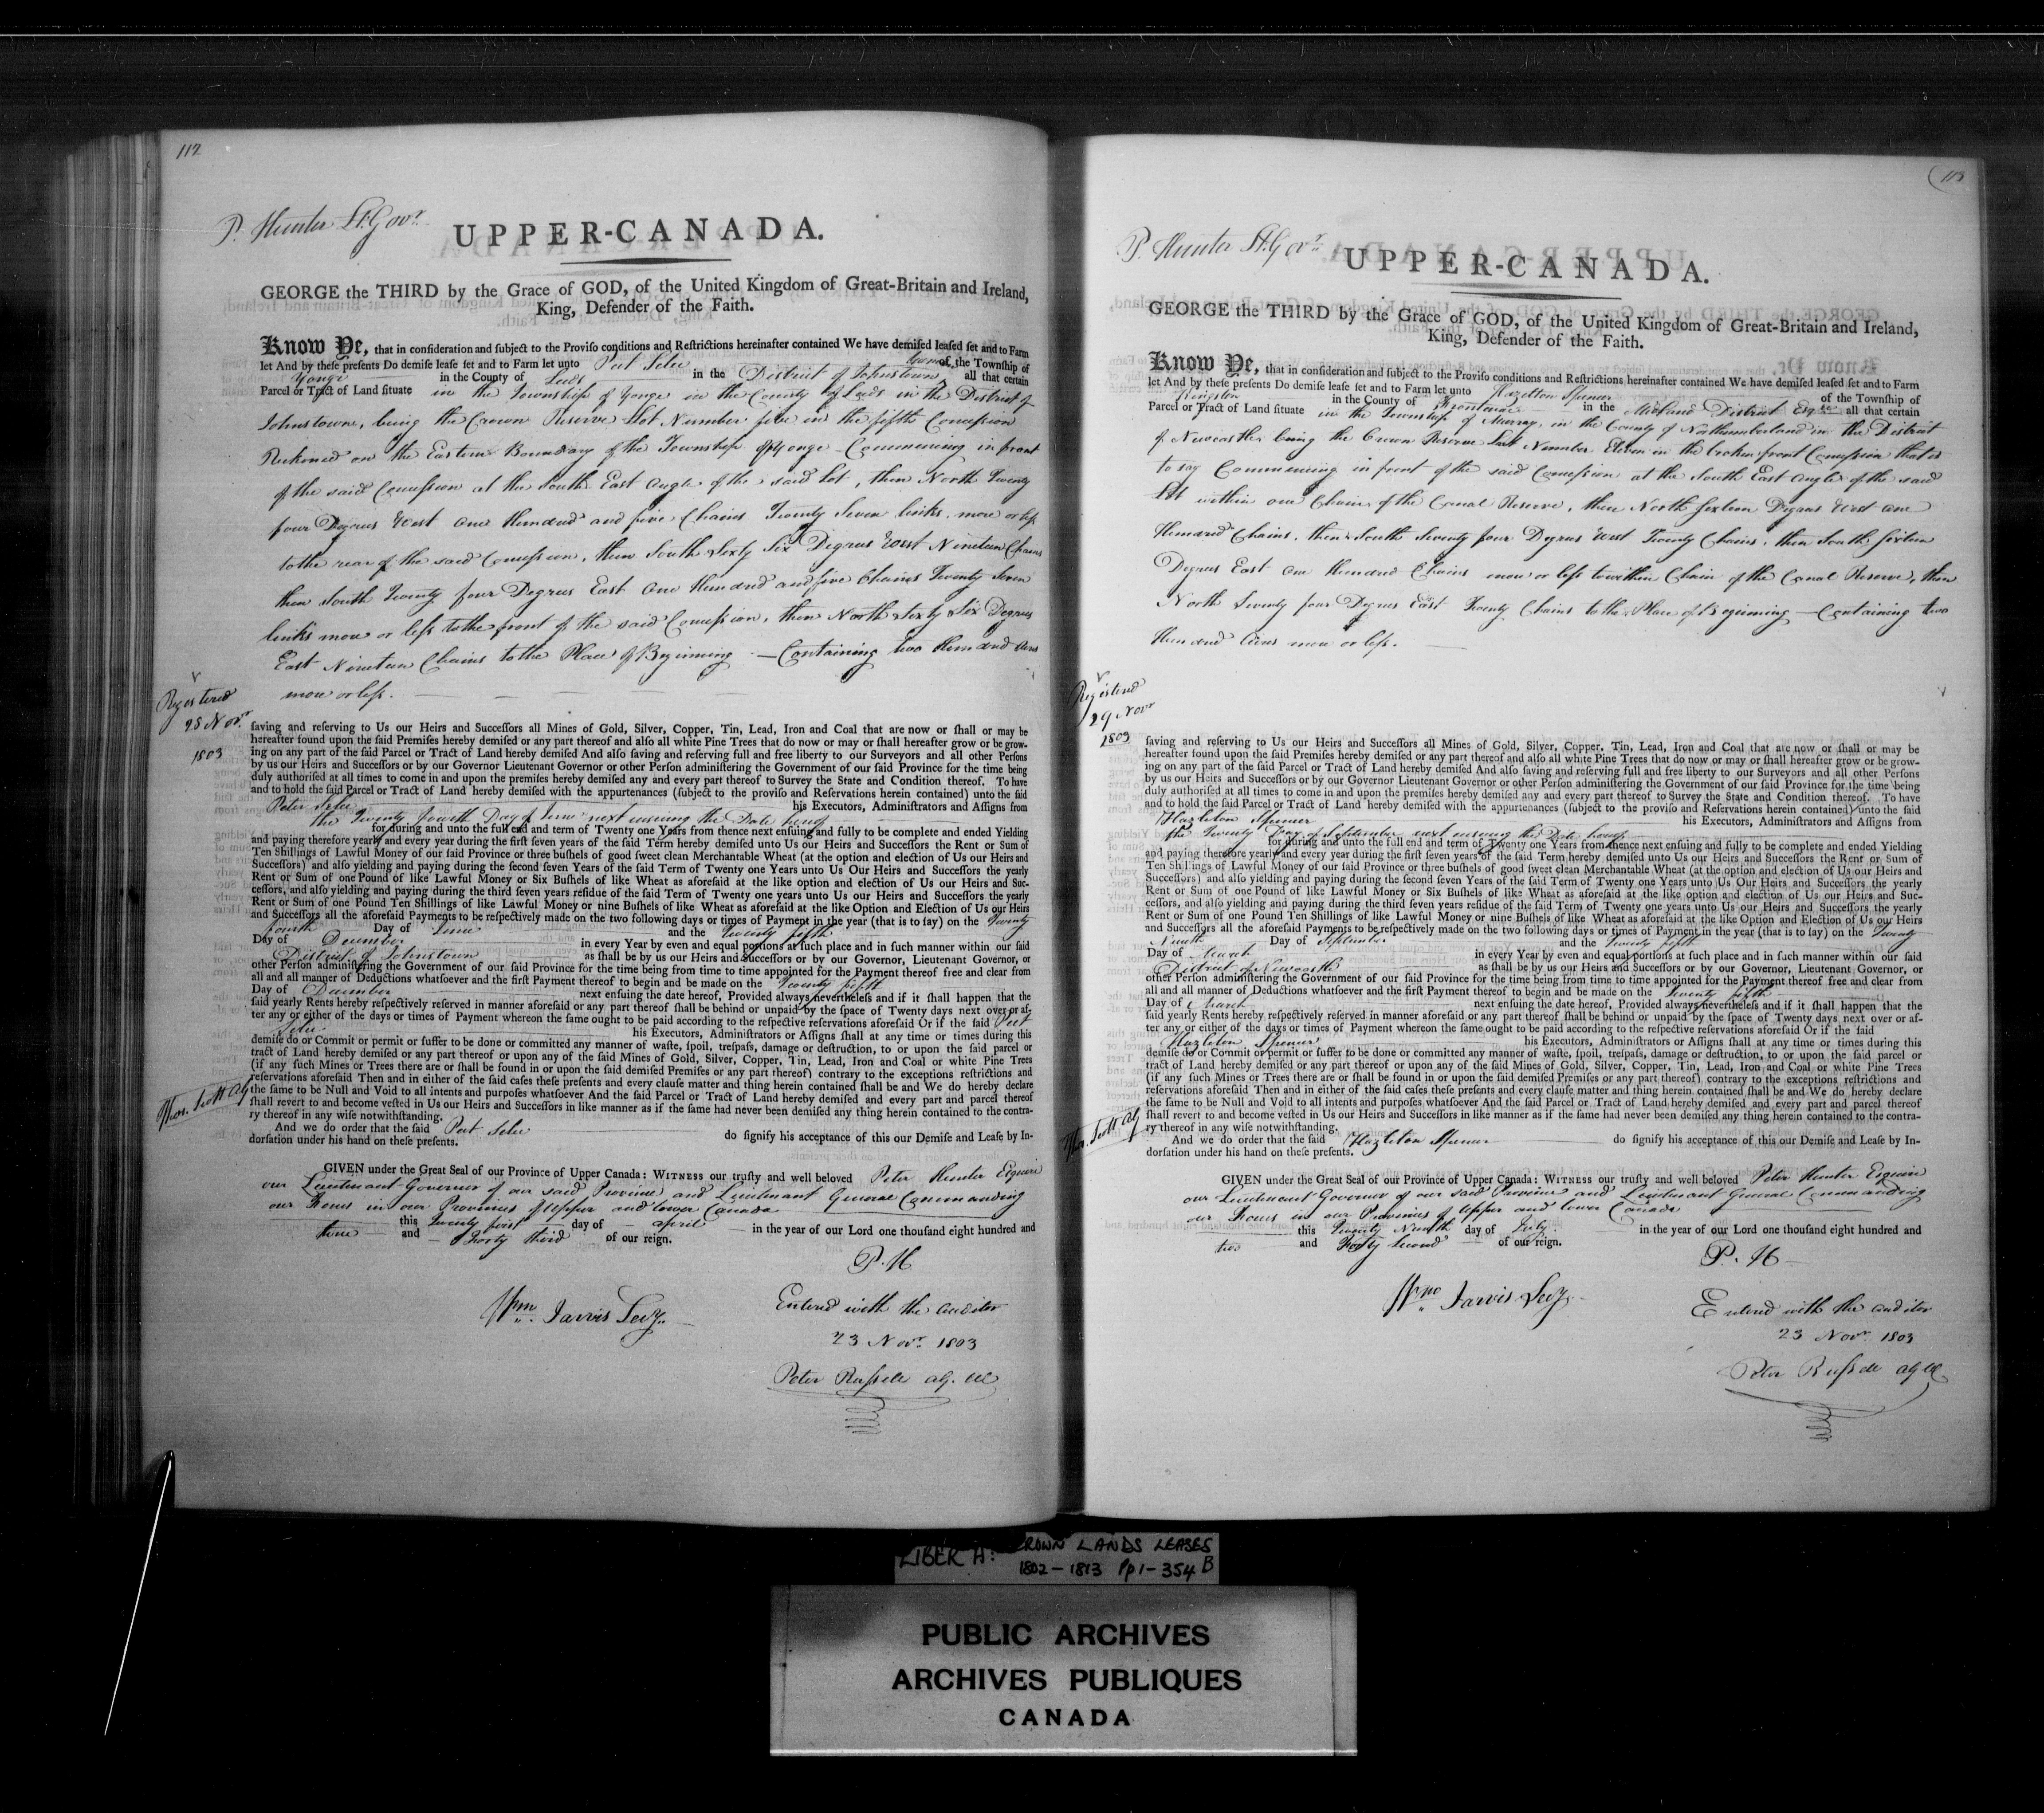 112
P. Hunter Lt. Govr.
UPPER-CANADA.
GEORGE the THIRD by the Grace of GOD, of the United Kingdom of Great-Britain and Ireland,
King, Defender of the Faith.
Know Ye, that in consideration and subject to the Proviso conditions and Restrictions hereinafter contained We have demised leased set and to Farm
let And by these presents Do demise lease set and to Farm let unto of the Township of
Yonge in the County of Leeds in the District of Johnstown, all that certain
Parcel or Tract of Land situate in the Township of Yonge in the County of Leeds in the District of
Johnstown, being the Crown Reserve Lot Number five in the fifth Concession
Reckoned on the Eastern Boundary of the Township of Yonge - Commencing in front
of the said Concession at the South East angle of the said Lot, then North Twenty
four Degrees West One Hundred and five Chains Twenty Seven links more or less
to the rear of the said Concession, then South Sixty Six Degrees West Nineteen Chains
then South Twenty four Degrees East One Hundred and five Chains Twenty Seven
links more or less to the front of the said Concession, then North Sixty Six Degrees
East Nineteen Chains to the Place of Beginning - Containing two Hundred Acres
more or less.
Registered
28 Novr.
1803
saving and reserving to Us our Heirs and Successors all Mines of Gold, Silver, Copper, Tin, Lead, Iron and Coal that are now or shall or may be
hereafter found upon the said Premises hereby demised or any part thereof and also all white Pine Trees that do now or may or shall hereafter grow or be grow-
ing on any part of the said Parcel or Tract of Land hereby demised And also saving and reserving full and free liberty to our Surveyors and all other Persons
by us our Heirs and Successors or by our Governor Lieutenant Governor or other Person administering the Government of our said Province for the time being
duly authorised at all times to come in and upon the premises hereby demised any and every part thereof to Survey the State and Condition thereof. To have
and to hold the said Parcel or Tract of Land hereby demised with the appurtenances (subject to the proviso and Reservations herein contained) unto the said
Peter his Executors, Administrators and Assigns from
the Twenty fourth Day of June next ensuing the Date hereof
for during and unto the full end and term of Twenty one Years from thence next ensuing and fully to be complete and ended Yielding
and paying therefore yearly and every year during the first seven years of the said Term hereby demised unto Us our Heirs and Successors the Rent or Sum of
Ten Shillings of Lawful Money of our said Province or three bushels of good sweet clean Merchantable Wheat (at the option and election of Us our Heirs and
Successors) and also yielding and paying during the second seven Years of the said Term of Twenty one Years unto Us Our Heirs and Successors the yearly
Rent or Sum of one Pound of like Lawful Money or Six Bushels of like Wheat as aforesaid at the like option and election of Us our Heirs and Suc-
cessors, and also yielding and paying during the third seven years residue of the said Term of Twenty one years unto Us our Heirs and Successors the yearly
Rent or Sum of one Pound Ten Shillings of like Lawful Money or nine Bushels of like Wheat as aforesaid at the like Option and Election of Us our Heirs
and Successors all the aforesaid Payments to be respectively made on the two following days or times of Payment in the year (that is to say) on the Twenty
fourth Day of June and the Twenty fifth
Day of December in every Year by even and equal portions at such place and in such manner within our said
District of Johnstown as shall be by us our Heirs and Successors or by our Governor, Lieutenant Governor, or
other Person administering the Government of our said Province for the time being from time to time appointed for the Payment thereof free and clear from
all and all manner of Deductions whatsoever and the first Payment thereof to begin and be made on the Twenty fifth
Day of December next ensuing the date hereof, Provided always nevertheless and if it shall happen that the
said yearly Rents hereby respectively reserved in manner aforesaid or any part thereof shall be behind or unpaid by the space of Twenty days next over or af-
ter any or either of the days or times of Payment whereon the same ought to be paid according to the respective reservations aforesaid Or if the said
his Executors, Administrators or Assigns shall at any time or times during this
demise do or Commit or permit or suffer to be done or committed any manner of waste, spoil, trespass, damage or destruction, to or upon the said parcel or
tract of Land hereby demised or any part thereof or upon any of the said Mines of Gold, Silver, Copper, Tin, Lead, Iron and Coal or white Pine Trees
(if any such Mines or Trees there are or shall be found in or upon the said demised Premises or any part thereof) contrary to the exceptions restrictions and
reservations aforesaid Then and in either of the said cases these presents and every clause matter and thing herein contained shall be and We do hereby declare
the same to be Null and Void to all intents and purposes whatsoever And the said Parcel or Tract of Land hereby demised and every part and parcel thereof
shall revert to and become vested in Us our Heirs and Successors in like manner as if the same had never been demised any thing herein contained to the contra-
ry thereof in any wise notwithstanding.
Thos. Scott Ag
And we do order that the said do signify his acceptance of this our Demise and Lease by In-
dorsation under his hand on these presents.
GIVEN under the Great Seal of our Province of Upper Canada: WITNESS our trusty and well beloved Peter Hunter Esquire
our Lieutenant Governor of our said Province and Lieutenant General Commanding
our Forces in our Provinces of Upper and Lower Canada
this Twenty first day of april in the year of our Lord one thousand eight hundred and
three and Forty third of our reign.
P. H
Wm. Jarvis Secy.
Entered with the auditor
23 Novr. 1803
Peter Russell
P. Hunter Lt. Govr.
UPPER-CANADA.
GEORGE the THIRD by the Grace of GOD, of the United Kingdom of Great-Britain and Ireland,
King, Defender of the Faith.
Know Ye, that in consideration and subject to the Proviso conditions and Restrictions hereinafter contained We have demised leased set and to Farm
let And by these presents Do demise lease set and to Farm let unto Hazelton Spencer of the Township of
Kingston in the County of Frontenac in the Midland District Esqre all that certain
Parcel or Tract of Land situate in the Township of Murray, in the County of Northumberland in the District
of Newcastle being the Crown Reserve Lot Number Eleven in the broken front Concession that is
to say Commencing in front of the said Concession at the South East angle of the said
Lot within one Chain of the Canal Reserve, then North Sixteen Degrees West one
Hundred Chains, then South Seventy four Degrees West Twenty Chains, then South Sixteen
Degrees East One Hundred Chains more or less to within Chain of the Canal Reserve, then
North Seventy four Degrees East Twenty Chains to the Place of Beginning - Containing two
Hundred Acres more or less.
Registered
29 Novr
1803
saving and reserving to Us our Heirs and Successors all Mines of Gold, Silver, Copper, Tin, Lead, Iron and Coal that are now or shall or may be
hereafter found upon the said Premises hereby demised or any part thereof and also all white Pine Trees that do now or may or shall hereafter grow or be grow-
ing on any part of the said Parcel or Tract of Land hereby demised And also saving and reserving full and free liberty to our Surveyors and all other Persons
by us our Heirs and Successors or by our Governor Lieutenant Governor or other Person administering the Government of our said Province for the time being
duly authorised at all times to come in and upon the premises hereby demised any and every part thereof to Survey the State and Condition thereof. To have
and to hold the said Parcel or Tract of Land hereby demised with the appurtenances (subject to the proviso and Reservations herein contained) unto the said
Hazleton Spencer his Executors, Administrators and Assigns from
the Twenty Day of September next ensuing the Date hereof
for during and unto the full end and term of Twenty one Years from thence next ensuing and fully to be complete and ended Yielding
and paying therefore yearly and every year during the first seven years of the said Term hereby demised unto Us our Heirs and Successors the Rent or Sum of
Ten Shillings of Lawful Money of our said Province or three bushels of good sweet clean Merchantable Wheat (at the option and election of Us our Heirs and
Successors) and also yielding and paying during the second seven Years of the said Term of Twenty one Years unto Us Our Heirs and Successors the yearly
Rent or Sum of one Pound of like Lawful Money or Six Bushels of like Wheat as aforesaid at the like option and election of Us our Heirs and Suc-
cessors, and also yielding and paying during the third seven years residue of the said Term of Twenty one years unto Us our Heirs and Successors the yearly
Rent or Sum of one Pound Ten Shillings of like Lawful Money or nine Bushels of like Wheat as aforesaid at the like Option and Election of Us our Heirs
and Successors all the aforesaid Payments to be respectively made on the two following days or times of Payment in the year (that is to say) on the Twenty
Ninth Day of September and the Twenty fifth
Day of March in every Year by even and equal portions at such place and in such manner within our said
District of Newcastle as shall be by us our Heirs and Successors or by our Governor, Lieutenant Governor, or
other Person administering the Government of our said Province for the time being from time to time appointed for the Payment thereof free and clear from
all and all manner of Deductions whatsoever and the first Payment thereof to begin and be made on the Twenty fifth
Day of March next ensuing the date hereof, Provided always nevertheless and if it shall happen that the
said yearly Rents hereby respectively reserved in manner aforesaid or any part thereof shall be behind or unpaid by the space of Twenty days next over or af-
ter any or either of the days or times of Payment whereon the same ought to be paid according to the respective reservations aforesaid Or if the said
Hazleton Spencer his Executors, Administrators or Assigns shall at any time or times during this
demise do or Commit or permit or suffer to be done or committed any manner of waste, spoil, trespass, damage or destruction, to or upon the said parcel or
tract of Land hereby demised or any part thereof or upon any of the said Mines of Gold, Silver, Copper, Tin, Lead, Iron and Coal or white Pine Trees
(if any such Mines or Trees there are or shall be found in or upon the said demised Premises or any part thereof) contrary to the exceptions restrictions and
reservations aforesaid Then and in either of the said cases these presents and every clause matter and thing herein contained shall be and We do hereby declare
the same to be Null and Void to all intents and purposes whatsoever And the said Parcel or Tract of Land hereby demised and every part and parcel thereof
shall revert to and become vested in Us our Heirs and Successors in like manner as if the same had never been demised any thing herein contained to the contra-
ry thereof in any wise notwithstanding.
Thos. Scott Ag
And we do order that the said Hazleton Spencer do signify his acceptance of this our Demise and Lease by In-
dorsation under his hand on these presents.
GIVEN under the Great Seal of our Province of Upper Canada: WITNESS our trusty and well beloved Peter Hunter Esquire
our Lieutenant Governor of our said Province and Lieutenant General Commanding
our Forces in our Provinces of Upper and Lower Canada
this Twenty Ninth day of July in the year of our Lord one thousand eight hundred and
two and Forty Second of our reign.
P. H
Wm. Jarvis Secy.
Entered with the auditor
23 Novr. 1803
Peter Russell
LIBER A: CROWN LANDS LEASES
1802-1813 Pp 1-354 B
PUBLIC ARCHIVES
ARCHIVES PUBLIQUES
CANADA